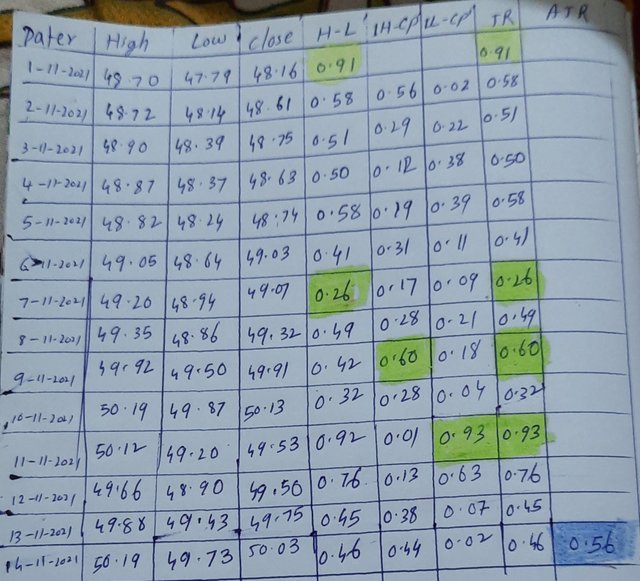 Dater High Low Close H-L |H-CP| |L-CP| TR ATR
1-11-2021 48.70 47.79 48.16 0.91 0.91
2-11-2021 48.72 48.14 48.61 0.58 0.56 0.02 0.58
3-11-2021 48.90 48.39 48.75 0.51 0.29 0.22 0.51
4-11-2021 48.87 48.37 48.63 0.50 0.12 0.38 0.50
5-11-2021 48.82 48.24 48.74 0.58 0.19 0.39 0.58
6-11-2021 49.05 48.64 49.03 0.41 0.31 0.11 0.41
7-11-2021 49.20 48.94 49.07 0.26 0.17 0.09 0.26
8-11-2021 49.35 48.86 49.32 0.49 0.28 0.21 0.49
9-11-2021 49.92 49.50 49.91 0.42 0.60 0.18 0.60
10-11-2021 50.19 49.87 50.13 0.32 0.28 0.04 0.32
11-11-2021 50.12 49.20 49.53 0.92 0.01 0.93 0.93
12-11-2021 49.66 48.90 49.50 0.76 0.13 0.63 0.76
13-11-2021 49.88 49.43 49.75 0.45 0.38 0.07 0.45
14-11-2021 50.19 49.73 50.03 0.46 0.44 0.02 0.46 0.56